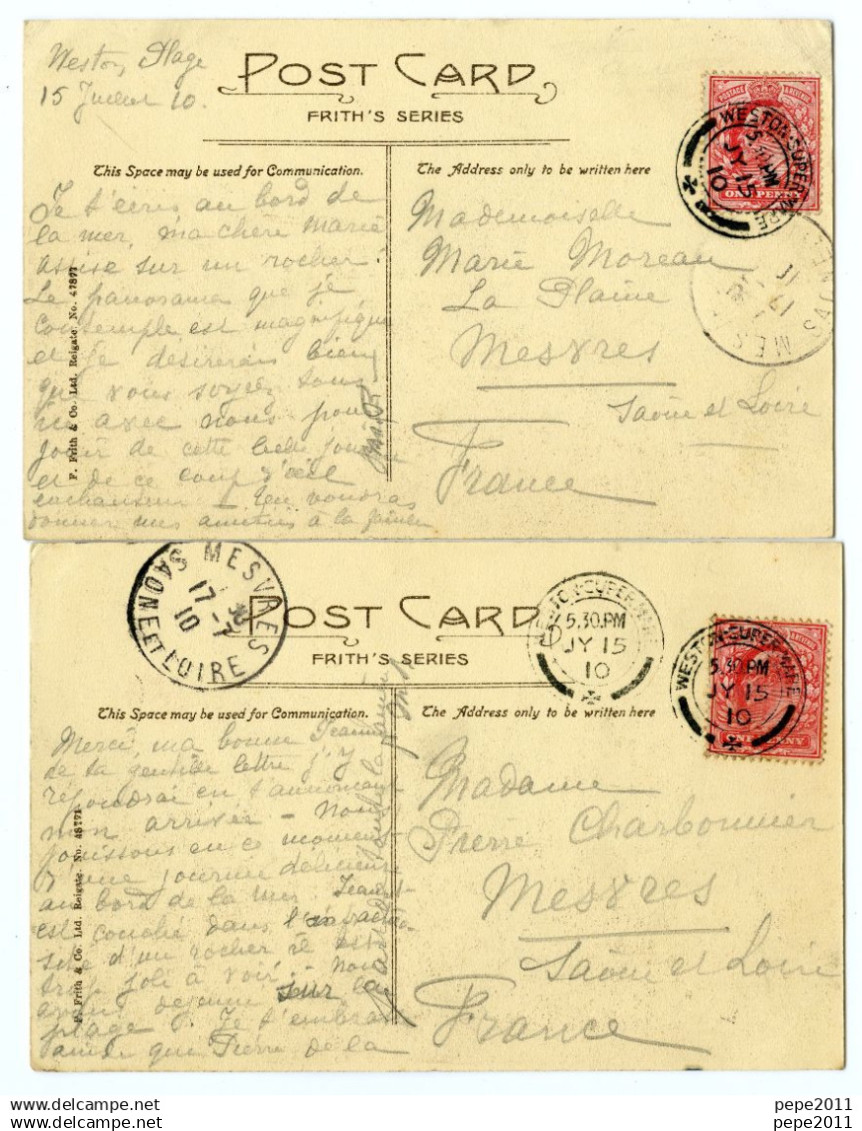 Weston Plage
15 Juillet 10.
POST CARD
FRITH'S SERIES
This Space may be used for Communication.
The Address only to be written here
POSTAGE
ONE PENNY
WESTON-SUPER-MARE
5.30 PM
JY 15
10
Je t'écris au bord de
la mer, ma chère Marie
assise sur un rocher.
Le panorama que je
contemple est magnifique
et je désirerais bien
que vous soyez tous
avec nous pour
jouir de cette belle journée
et de ce coup d'œil
enchanteur - Tu voudras
donner mes amitiés à la famille
F. Frith & Co. Ltd. Reigate. No. 47877
Mademoiselle
Marie Moreau
La Plaine
Mesvres
Saône et Loire
France
MESVRES
SAONE ET LOIRE
17-7
10
POST CARD
FRITH'S SERIES
This Space may be used for Communication.
The Address only to be written here
WESTON-SUPER-MARE
5.30 PM
JY 15
10
WESTON-SUPER-MARE
5.30 PM
JY 15
10
Merci, ma bonne Jeanne
de ta gentille lettre j'y
répondrai en t'annonçant
mon arrivée - Nous
jouissons en ce moment
d'une journée délicieuse
au bord de la mer.
est couché dans
d'un rocher
trop joli à voir - Nous
avons déjeuné sur la
plage - Je t'embrasse
ainsi que Pierre de la
F. Frith & Co. Ltd. Reigate. No.
Madame
Pierre Charbonnier
Mesvres
Saône et Loire
France
pepe2011
pepe2011